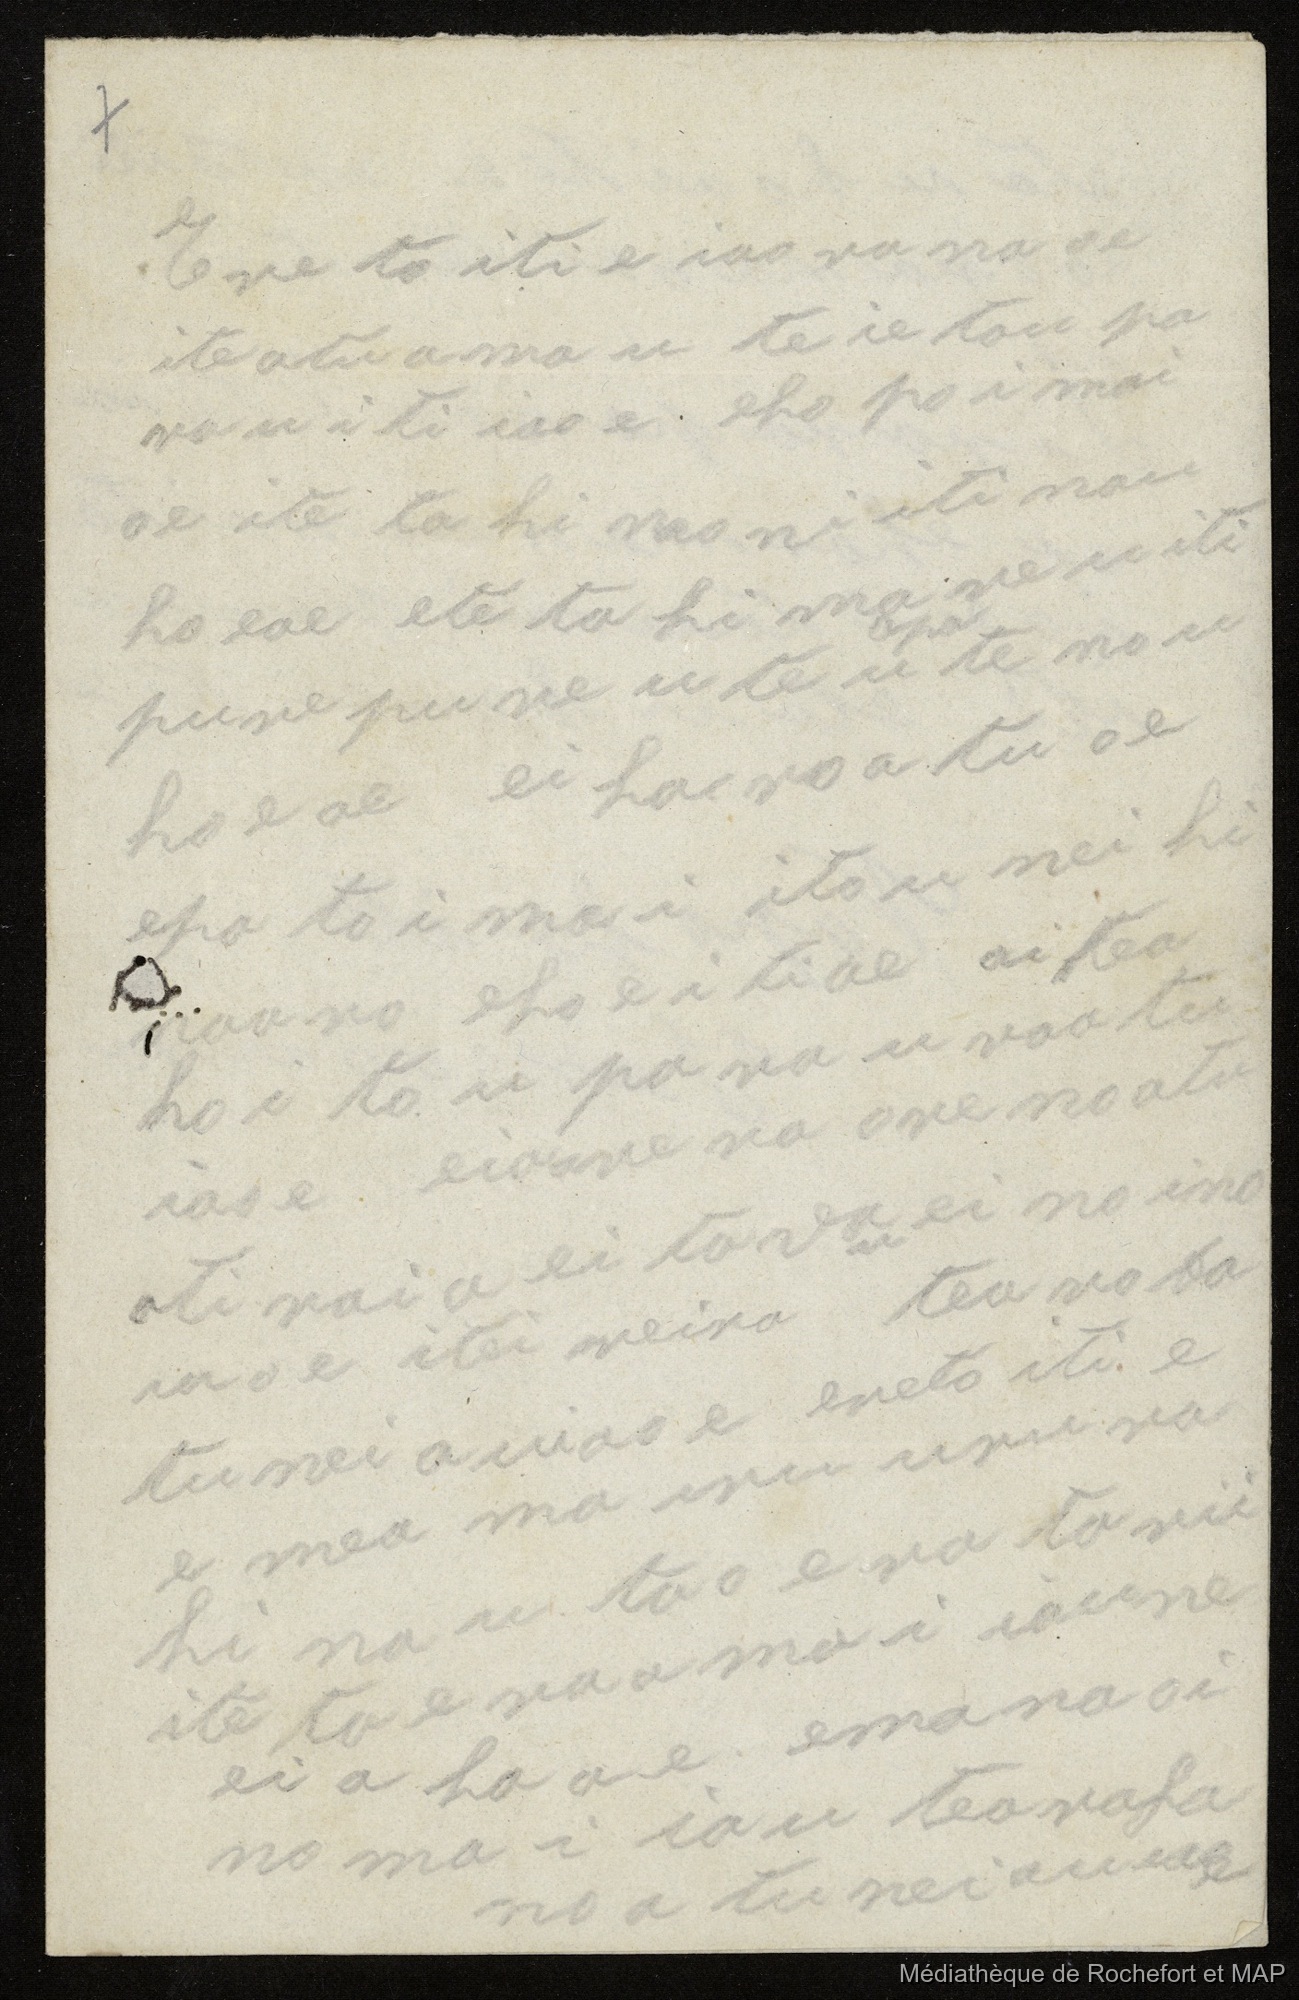 E re to iti e iao ra na oe
ite atu a ma u te ie tou pa
ra u i ti iao e. eho po i mai
oe ite ta hi rao ni iti na u
ho e ae ete ta hi ma re u iti
epa
pure pu re u te u te na u
ho e ae ei ha ro a tu oe
epo to i ma i ito u nei hi
naa ro eho e i ti ae ai tea
ho i to u pa ra u raa tu
iao e eia re ra ore noatu
ati rai a ei ta ra ei no ino
u
ia o e itei reira tea ro ha
tu nei a u iao e ereto iti e
e mea ma uru uru ra
hi na u ta o e ra ta rii
ite ta e raa ma i iau ne
ei a ha a e. ema na oi
no ma i ia u tea roha
no a tu nei au iao e
Médiathèque de Rochefort et MAP